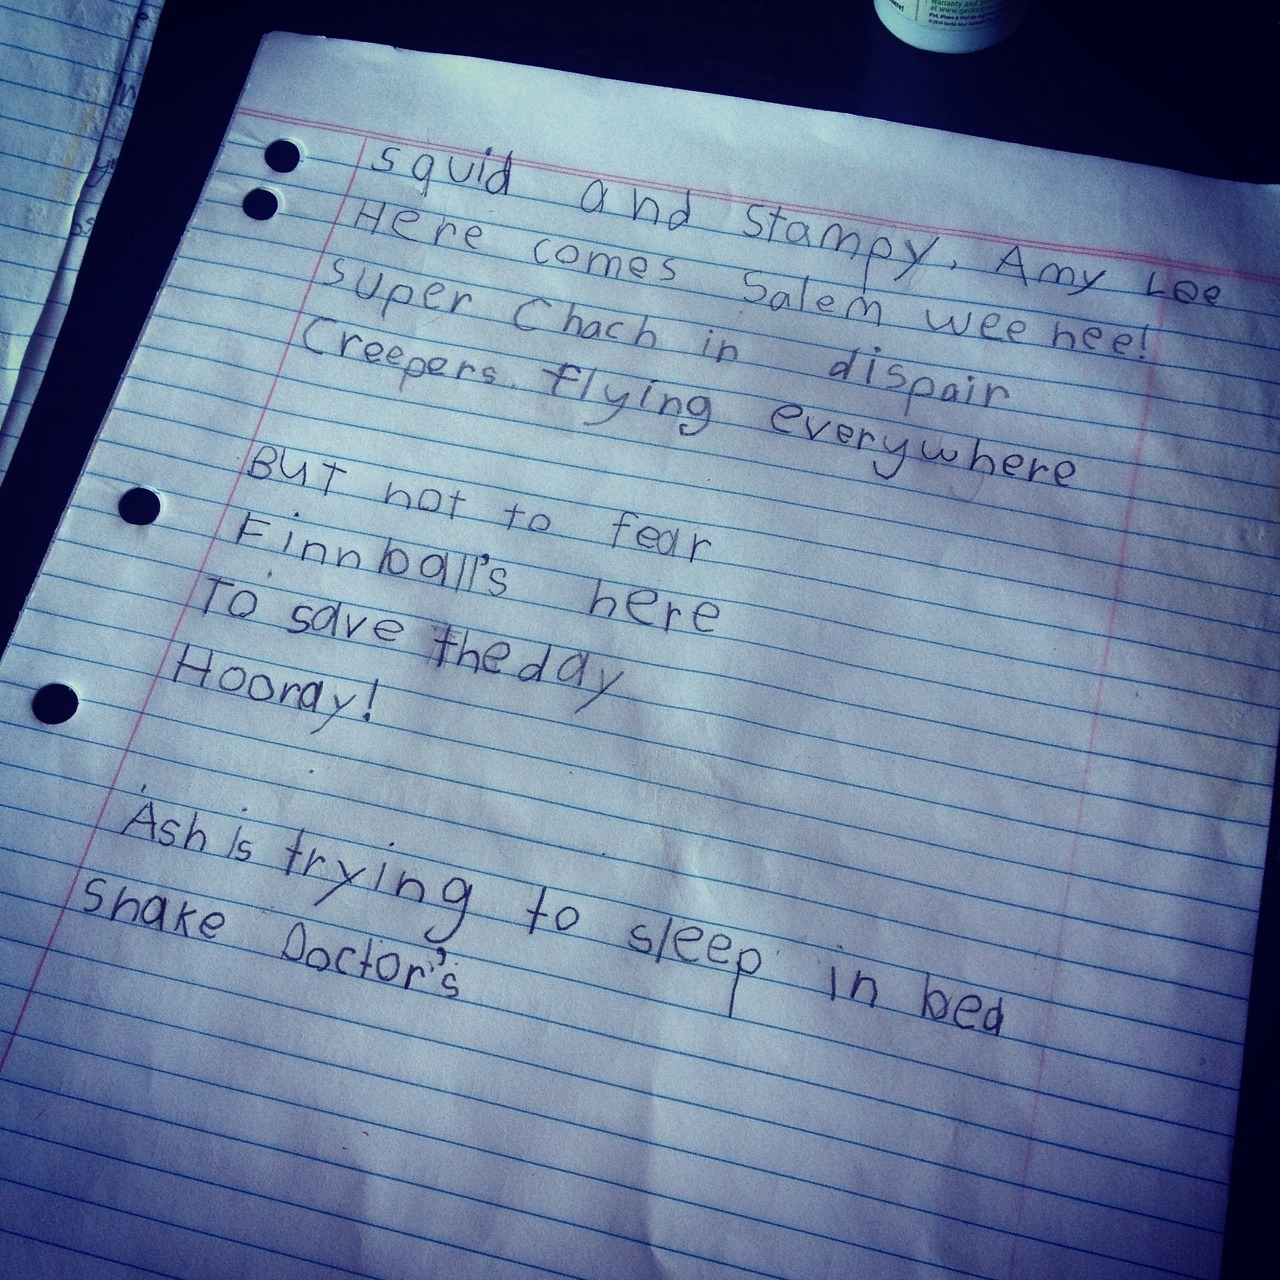 squid and Stampy, Amy Lee
Here comes Salem wee hee!
super Chach in dispair
Creepers flying everywhere
BUT not to fear
Finnball's here
To save the day
Hooray!
Ash is trying to sleep in bed
Snake Doctor's